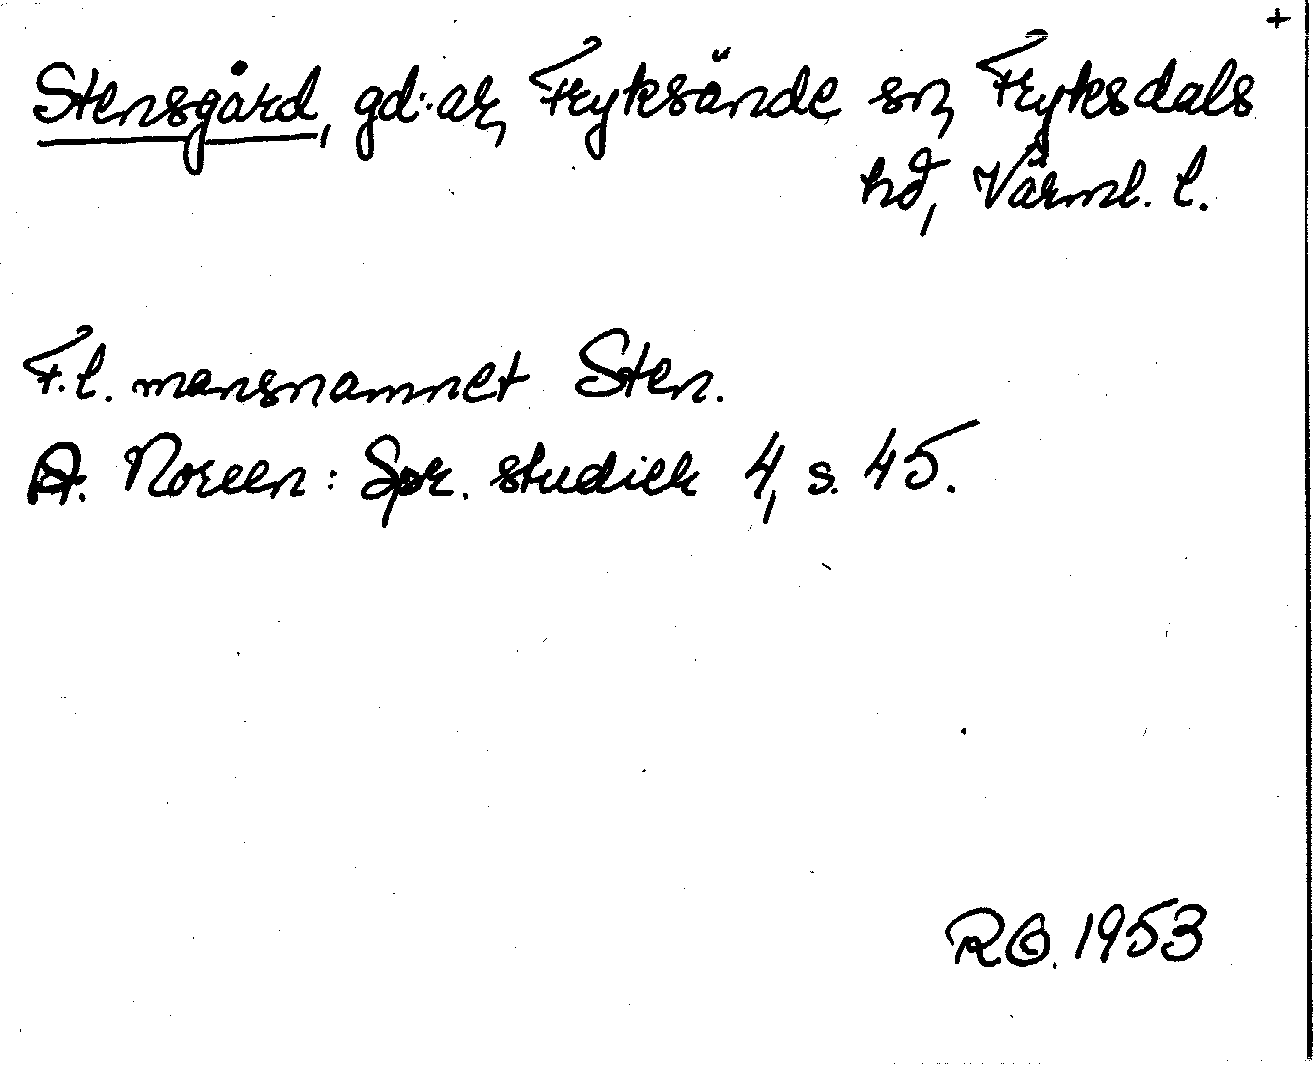 +
Stensgård, gd:ar, Fryksände sn, Fryksdals
hd, Värml. l.
F.l. mansnamnet Sten.
A. Noreen: Spr. studier 4, s. 45.
RO. 1953